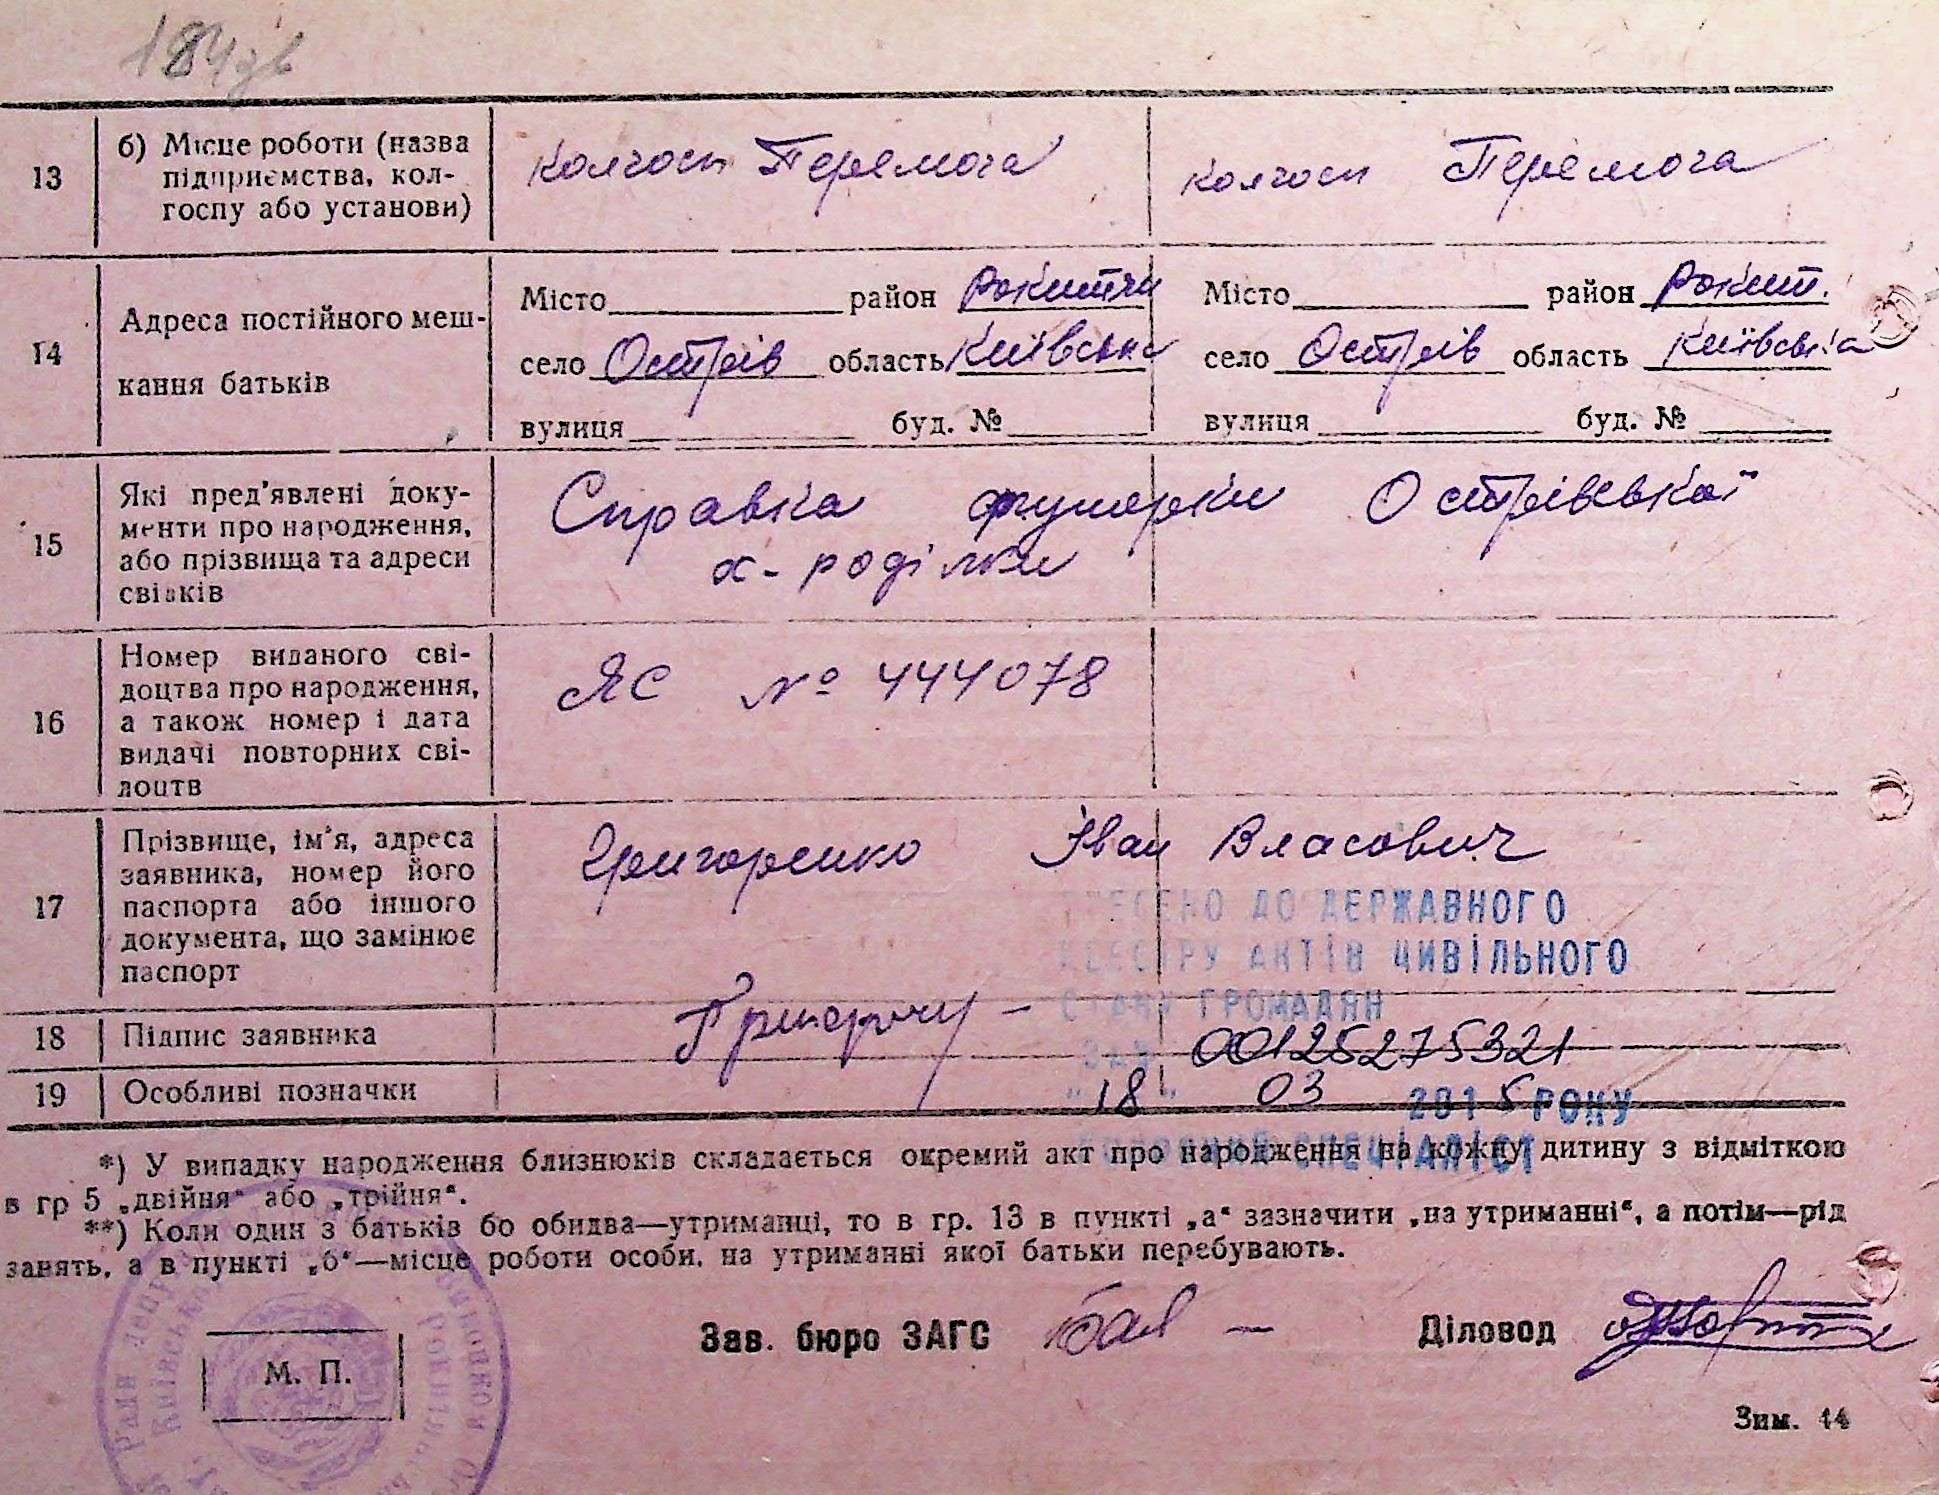 184зв
13
б) Місце роботи (назва
підприємства, кол-
госпу або установи)
колгосп Перемога
колгосп Перемога
14
Адреса постійного меш-
кання батьків
Місто район Рокитян
село Острів область Київська
вулиця буд. №
Місто район Рокит.
село Острів область Київська
вулиця буд. №
15
Які пред'явлені доку-
менти про народження,
або прізвища та адреси
свідків
Справка Острівської
х-роділки
16
Номер виданого сві-
доцтва про народження,
а також номер і дата
видачі повторних сві-
доцтв
ЯС № 444078
17
Прізвище, ім'я, адреса
заявника, номер його
паспорта або іншого
документа, що замінює
паспорт
Григоренко Іван Власович
ВНЕСЕНО ДО ДЕРЖАВНОГО
РЕЄСТРУ АКТІВ ЦИВІЛЬНОГО
СТАНУ ГРОМАДЯН
ЗА № 00125275321
"18" 03 2015 РОКУ
ГОЛОВНИЙ СПЕЦІАЛІСТ
18
Підпис заявника
19
Особливі позначки
*) У випадку народження близнюків складається окремий акт про народження на кожну дитину з відміткою
в гр 5 „двійня“ або „трійня“.
**) Коли один з батьків бо обидва—утриманці, то в гр. 13 в пункті „а“ зазначити „на утриманні“, а потім—рід
занять, а в пункті „б“—місце роботи особи, на утриманні якої батьки перебувають.
Зав. бюро ЗАГС
Діловод
М. П.
Зим. 14